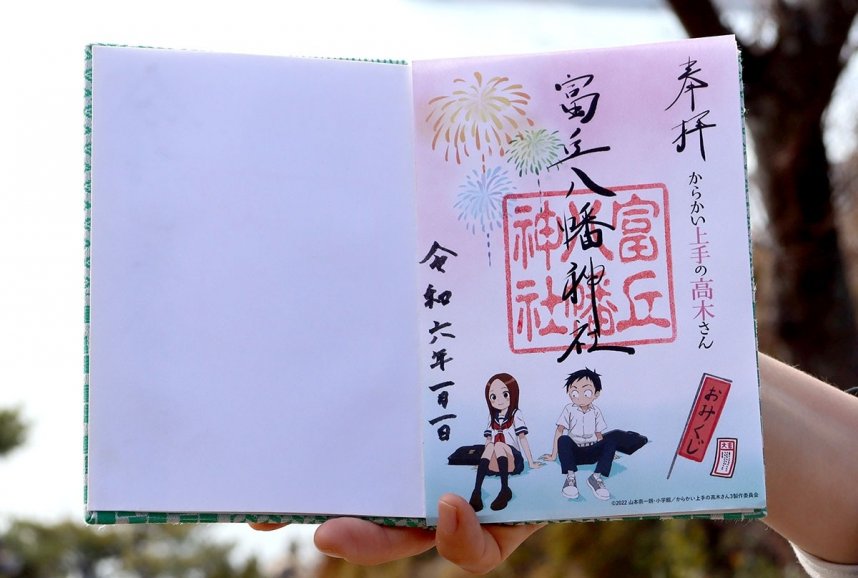 奉拝
からかい上手の高木さん
富丘八幡神社
富丘
八幡
神社
令和六年一月一日
おみくじ
大吉
©2022 山本崇一朗・小学館／からかい上手の高木さん3製作委員会